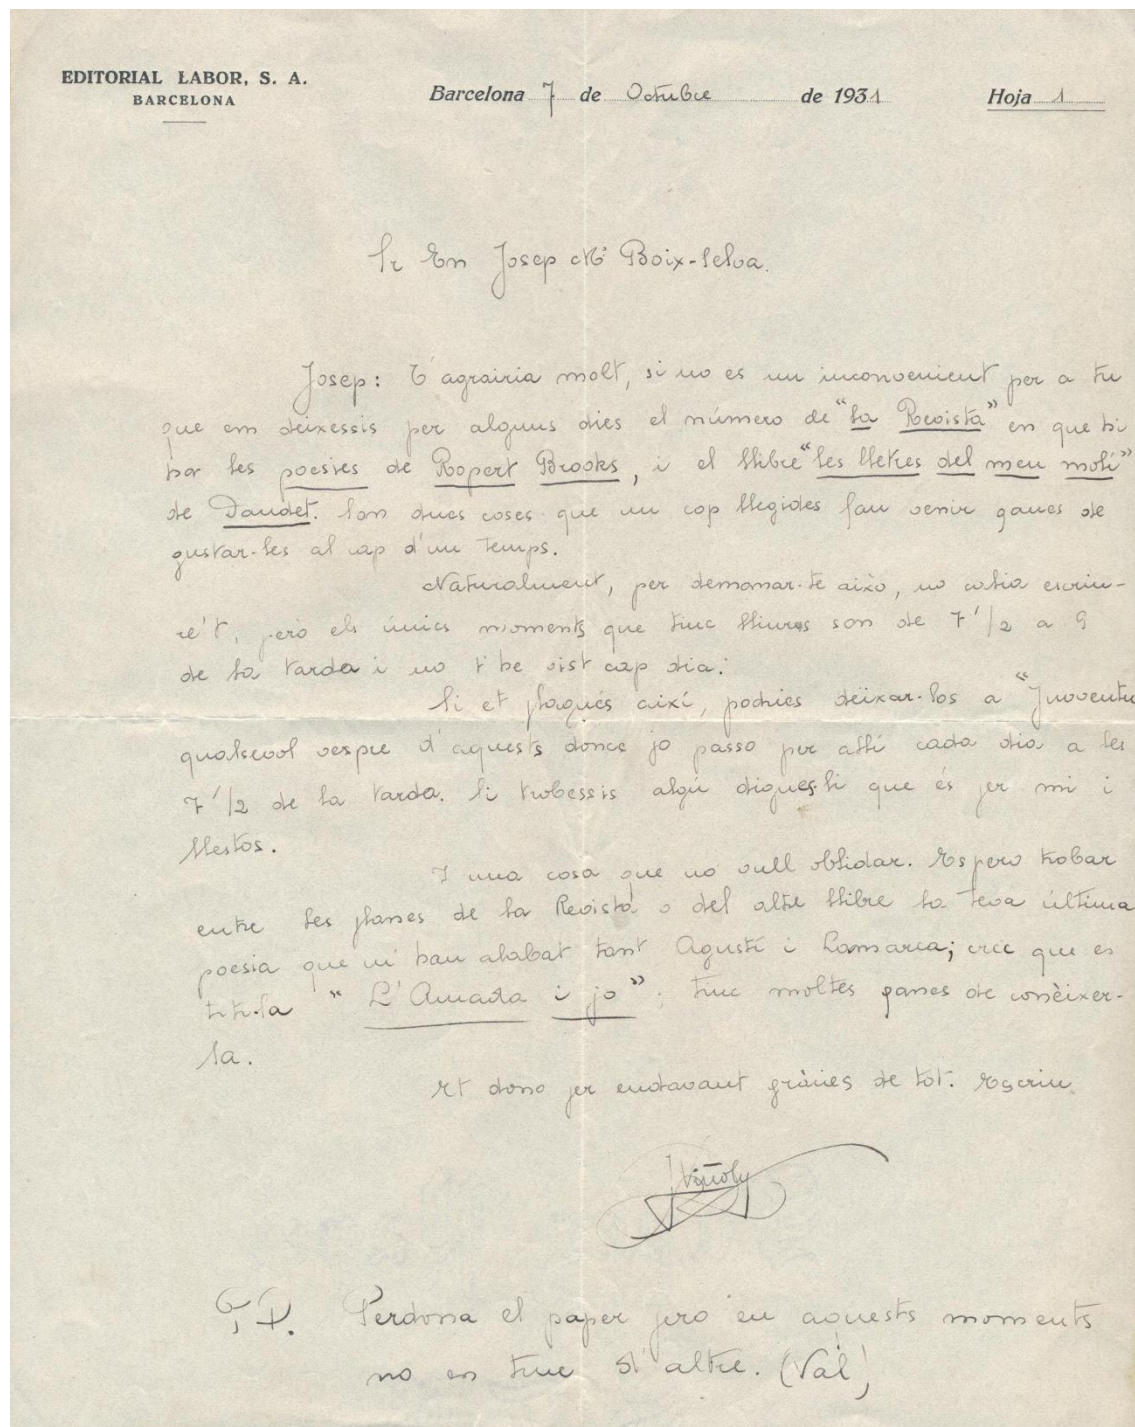 EDITORIAL LABOR, S. A.
BARCELONA
Barcelona 7 de Octubre de 1931 Hoja 1
Sr En Josep Mª Boix-Selva.
Josep: T'agrairia molt, si no es un inconvenient per a tu
que em deixessis per alguns dies el número de "La Revista" en que hi
ha les poesies de Ropert Brooks, i el llibre "les lletres del meu molí"
de Daudet. Son dues coses que un cop llegides fan venir ganes de
gustar-les al cap d'un temps.
Naturalment, per demanar-te això, no calia escriu-
re't, però els únics moments que tinc lliures son de 7 1/2 a 9
de la tarda i no t'he vist cap dia.
Si et plagués així, podries deixar-los a "Juventu
qualsevol vespre d'aquests donce jo passo per allí cada dia a les
7 1/2 de la tarda. Si trobessis algú digues-li que és per mi i
llestos.
I una cosa que no vull oblidar. Espero trobar
entre les planes de la Revista o del altre llibre la teva última
poesia que m'han alabat tant Agustí i Lamarca; crec que es
titi-la "L'Amada i jo"; tinc moltes ganes de conèixer-
la.
Et dono per endavant gràcies de tot. Escriu
Vignoly
P.D. Perdona el paper pro en aquests moments
no en tinc d'altre. (Val)